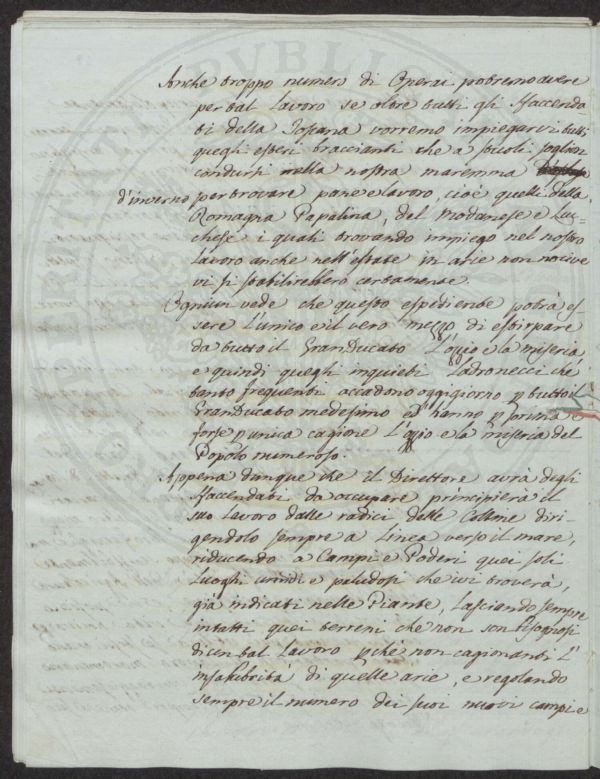 Anche troppo numero di Operai potremo avere
per tal Lavoro se oltre tutti gli sfaccenda-
ti della Toscana vorremo impiegarvi tutti
quegli esteri braccianti che a stuoli soglion
condursi nella nostra maremma
d'inverno per trovare pane e lavoro, cioè quelli della
Romagna Papalina, del Modanese e Luc-
chese i quali trovando impiego nel nostro
lavoro anche nell'estate in arie non nocive
vi si stabilirebbero certamente.
Ogniun vede che questo espediente potrà es-
sere l'unico e il vero mezzo di estirpare
da tutto il GranDucato L'ozzio e la miseria,
e quindi quegli inquieti Ladronecci che
tanto frequenti accadono oggigiorno p tutto il
GranDucato medesimo ed hanno p prima e
forse p unica cagione L'ozzio e la miseria del
Popolo numeroso.
Appena dunque che il Direttore avrà degli
sfaccendati da occupare principierà il
suo Lavoro dalle radici delle Colline diri-
gendolo sempre a Linea verso il mare,
riducendo a Campi e Poderi quei soli
Luoghi umidi e paludosi che ivi troverà,
già indicati nelle Piante, Lasciando sempre
intatti quei terreni che non son bisognosi
di un tal Lavoro pchè non cagionanti l'
insalubrità di quelle arie, e regolando
sempre il numero dei suoi nuovi campi e